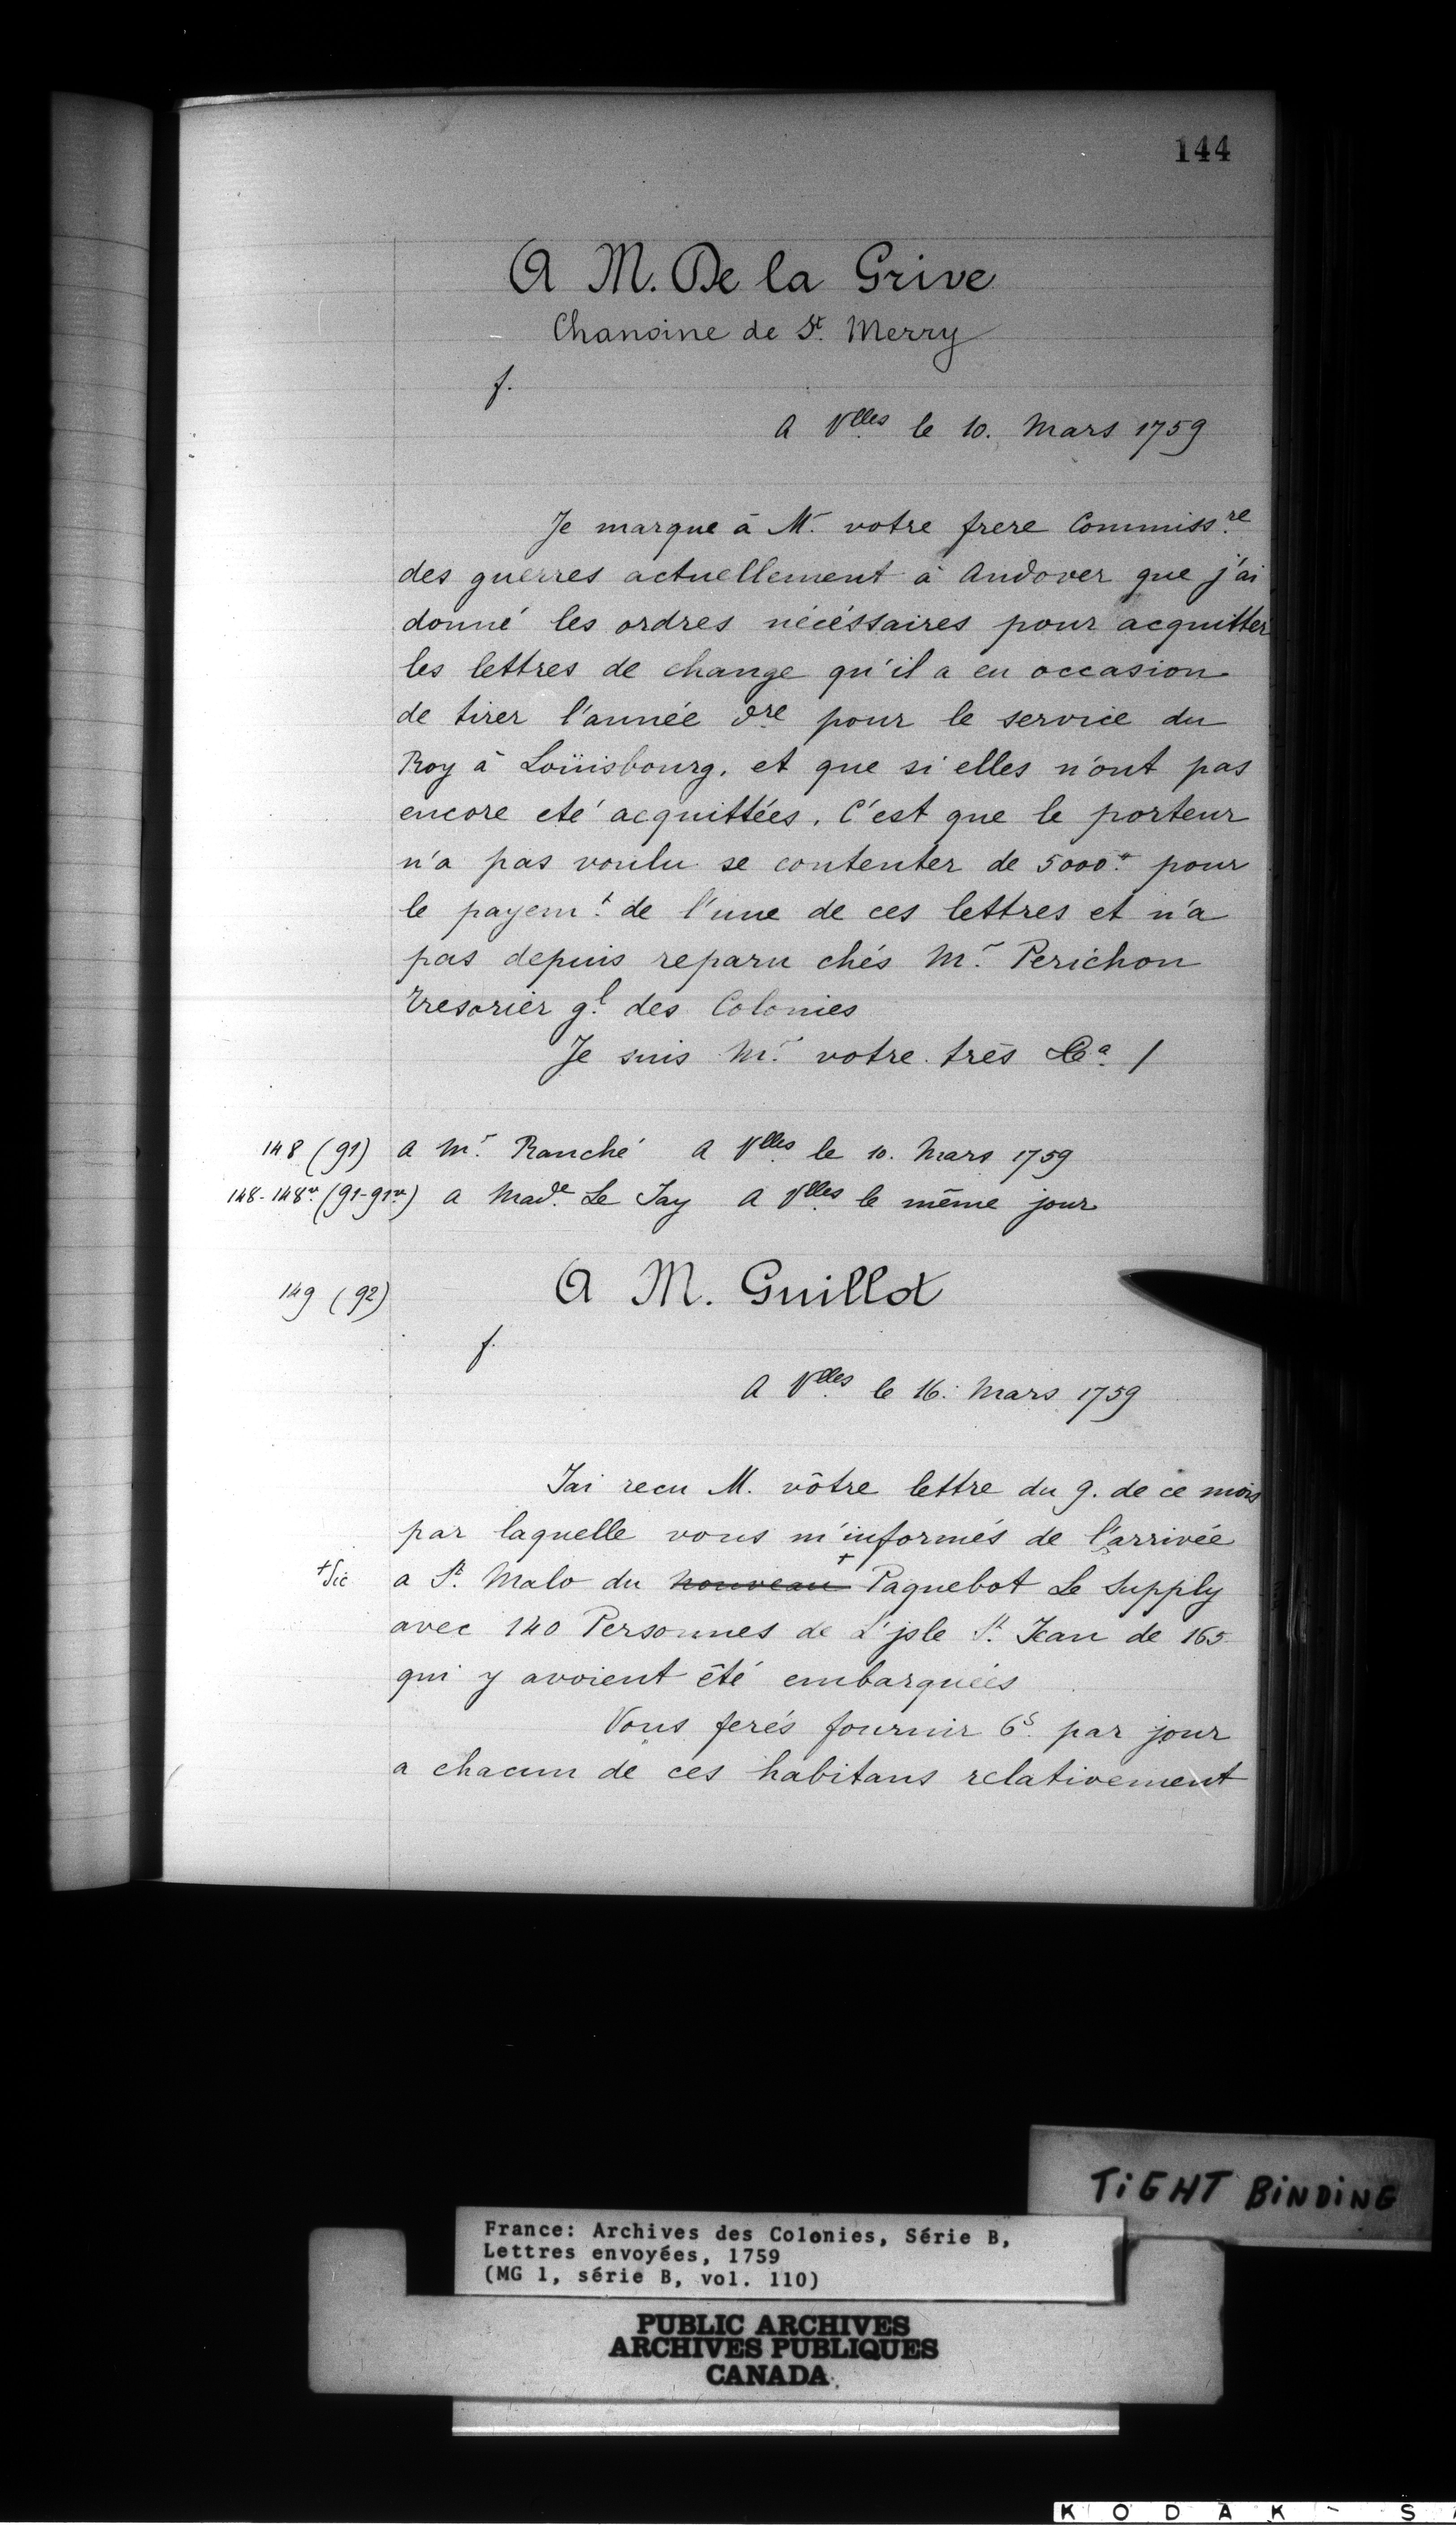 144
A M. De la Grive
Chanoine de St. Merry
f.
A Vlles le 10. Mars 1759
Je marque à Mr. votre frere Commissre.
des guerres actuellement à Andover que j'ai
donné les ordres nécéssaires pour acquitter
les lettres de change qu'il a eu occasion
de tirer l'année dre pour le service du
Roy à Loüisbourg. et que si elles n'ont pas
encore eté acquittées. C'est que le porteur
n'a pas voulu se contenter de 5000.# pour
le payemt. de l'une de ces lettres et n'a
pas depuis reparu chés Mr. Perichon
tresorier gl. des Colonies
Je suis Mr. votre très &a. /
148 (91) a Mr. Ranché A Vlles le 10. Mars 1759
148-148vo (91-91vo) a Made. Le Jay A Vlles le même jour
149 (92) A M. Guillot
f.
A Vlles le 16. Mars 1759
J'ai recu M. vôtre lettre du 9. de ce mois
par laquelle vous m'informés de l'arrivée
+Sic a St. Malo du nouveau + Paquebot Le Supply
avec 140 Personnes de L'jsle St. Jean de 165
qui y avoient été embarquées
Vous ferés fournir 6s. par jour
a chacun de ces habitans relativement
TIGHT BINDING
France: Archives des Colonies, Série B,
Lettres envoyées, 1759
(MG 1, série B, vol. 110)
PUBLIC ARCHIVES
ARCHIVES PUBLIQUES
CANADA
KODAK - S